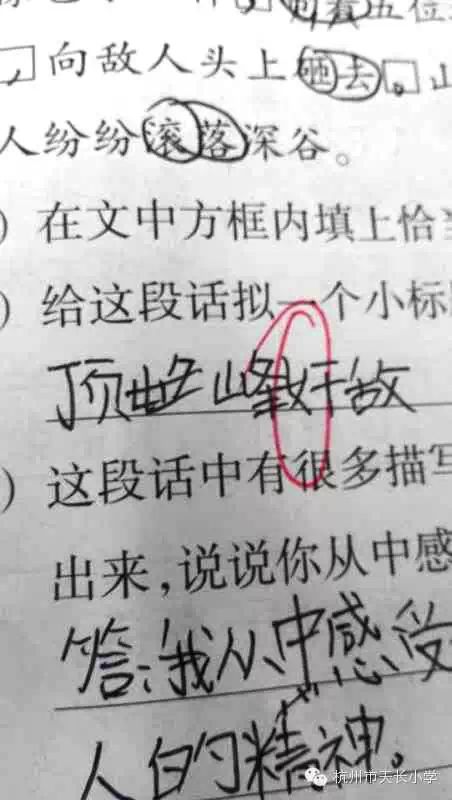 五位
,向敌人头上砸去。山
人纷纷滚落深谷。
) 在文中方框内填上恰
) 给这段话拟一个小标
顶峰奸敌
) 这段话中有很多描写
出来,说说你从中感
答:我从中感受
人的精神。
杭州市天长小学